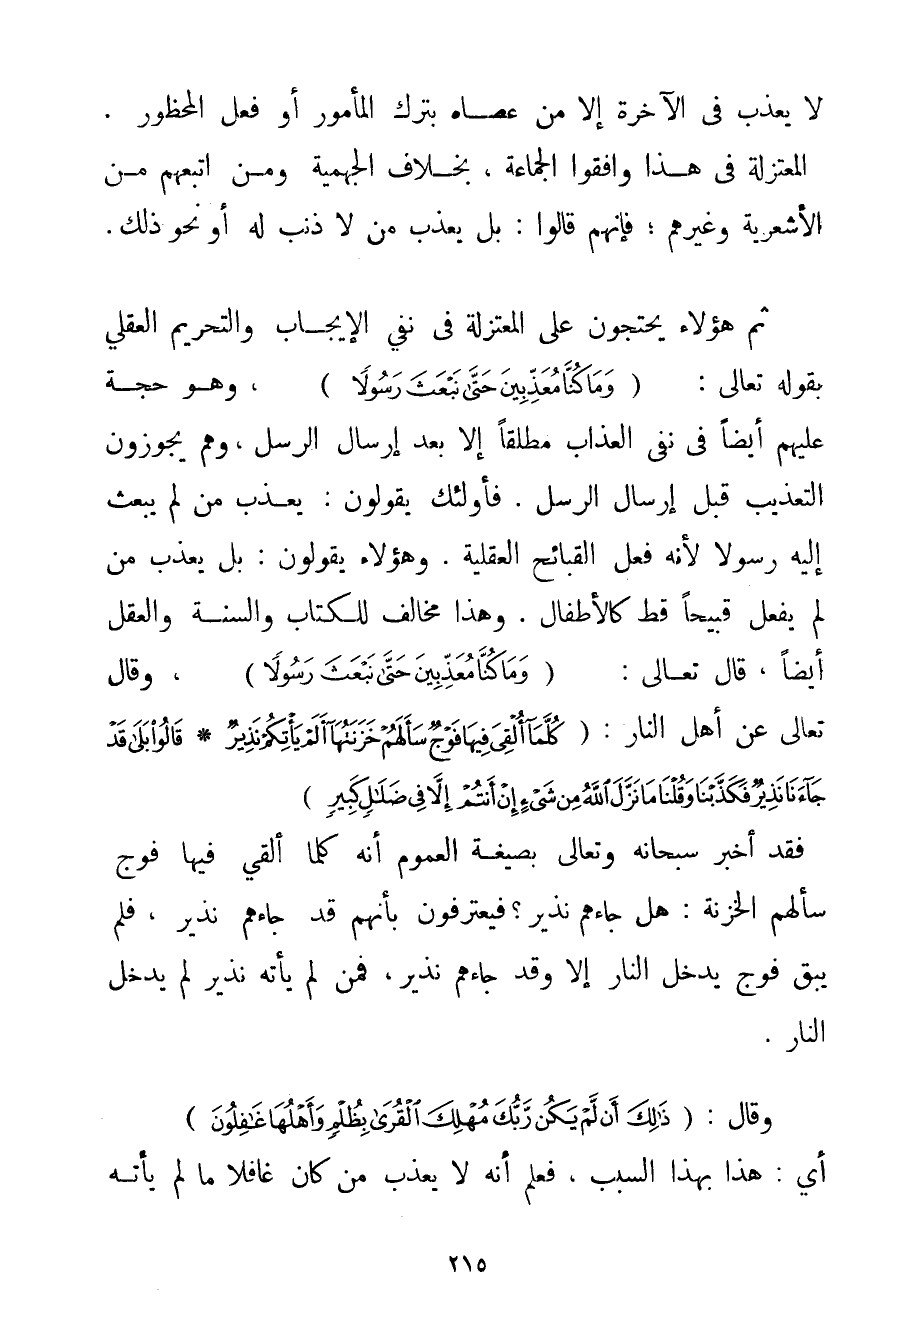 لا يعذب فى الآخرة إلا من عصاه بترك المأمور أو فعل المحظور .
المعتزلة فى هذا وافقوا الجماعة ، بخلاف الجهمية ومن اتبعهم من
الأشعرية وغيرهم ؛ فإنهم قالوا : بل يعذب من لا ذنب له أو نحو ذلك .
ثم هؤلاء يحتجون على المعتزلة فى نفي الإيجاب والتحريم العقلي
بقوله تعالى : ( وَمَا كُنَّا مُعَذِّبِينَ حَتَّىٰ نَبْعَثَ رَسُولًا ) ، وهو حجة
عليهم أيضاً فى نفى العذاب مطلقاً إلا بعد إرسال الرسل ، وهم يجوزون
التعذيب قبل إرسال الرسل . فأولئك يقولون : يعذب من لم يبعث
إليه رسولا لأنه فعل القبائح العقلية . وهؤلاء يقولون : بل يعذب من
لم يفعل قبيحاً قط كالأطفال . وهذا مخالف للكتاب والسنة والعقل
أيضاً ، قال تعالى : ( وَمَا كُنَّا مُعَذِّبِينَ حَتَّىٰ نَبْعَثَ رَسُولًا ) ، وقال
تعالى عن أهل النار : ( كُلَّمَآ أُلْقِىَ فِيهَا فَوْجٌ سَأَلَهُمْ خَزَنَتُهَآ أَلَمْ يَأْتِكُمْ نَذِيرٌ * قَالُوا۟ بَلَىٰ قَدْ
جَآءَنَا نَذِيرٌ فَكَذَّبْنَا وَقُلْنَا مَا نَزَّلَ ٱللَّهُ مِن شَىْءٍ إِنْ أَنتُمْ إِلَّا فِى ضَلَٰلٍ كَبِيرٍ )
فقد أخبر سبحانه وتعالى بصيغة العموم أنه كلما ألقي فيها فوج
سألهم الخزنة : هل جاءهم نذير ؟ فيعترفون بأنهم قد جاءهم نذير ، فلم
يبق فوج يدخل النار إلا وقد جاءهم نذير ، فمن لم يأته نذير لم يدخل
النار .
وقال : ( ذَٰلِكَ أَن لَّمْ يَكُن رَّبُّكَ مُهْلِكَ ٱلْقُرَىٰ بِظُلْمٍ وَأَهْلُهَا غَٰفِلُونَ )
أي : هذا بهذا السبب ، فعلم أنه لا يعذب من كان غافلا ما لم يأته
٢١٥